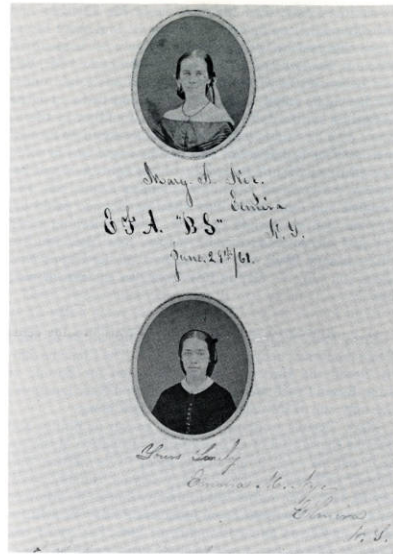 Mary A. Nye.
Elmira
E F A. "B S" N. Y.
June. 28th/61.
Yours Truly
Emma M. Nye
Elmira
N. Y.